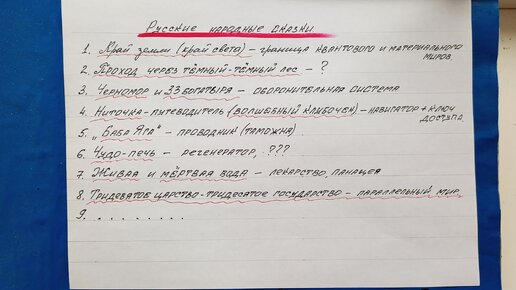 Русские народные сказки
1. Край земли (край света) – граница квантового и материального
миров.
2. Проход через тёмный-тёмный лес – ?
3. Черномор и 33 богатыря – оборонительная система
4. Ниточка-путеводитель (волшебный клубочек) – навигатор + ключ
доступа.
5. „Баба Яга" – проводник (таможня)
6. Чудо-печь – регенератор, ???
7. Живая и мёртвая вода – лекарство, панацея
8. Тридевятое царство-тридесятое государство – параллельный мир.
9. . . . . . . . .